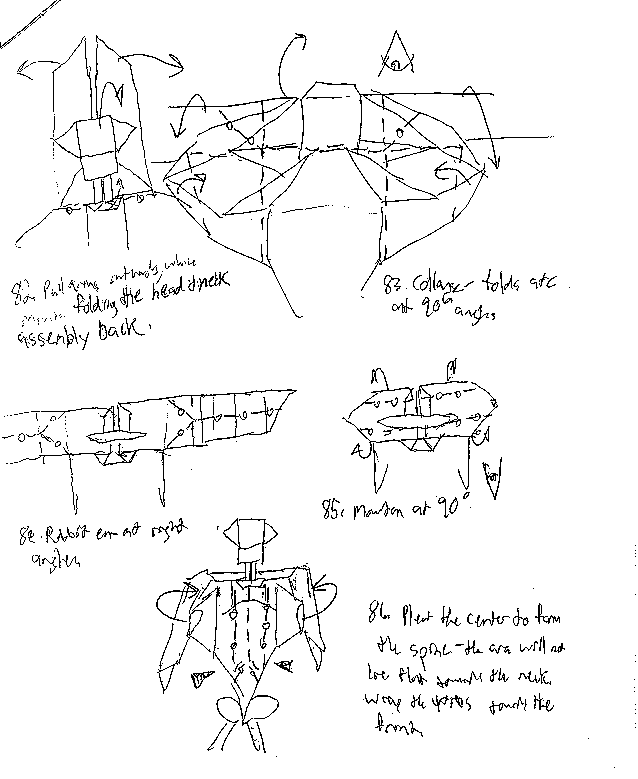 82. Pull arms outwards, while
folding the head & neck
assembly back.
83. Collapse - folds are
at 90° angles
84. Rabbit ear at right
angles
85. Mountain at 90°.
86. Pleat the center to form
the spine - the area will not
lie flat towards the neck.
the towards the
front